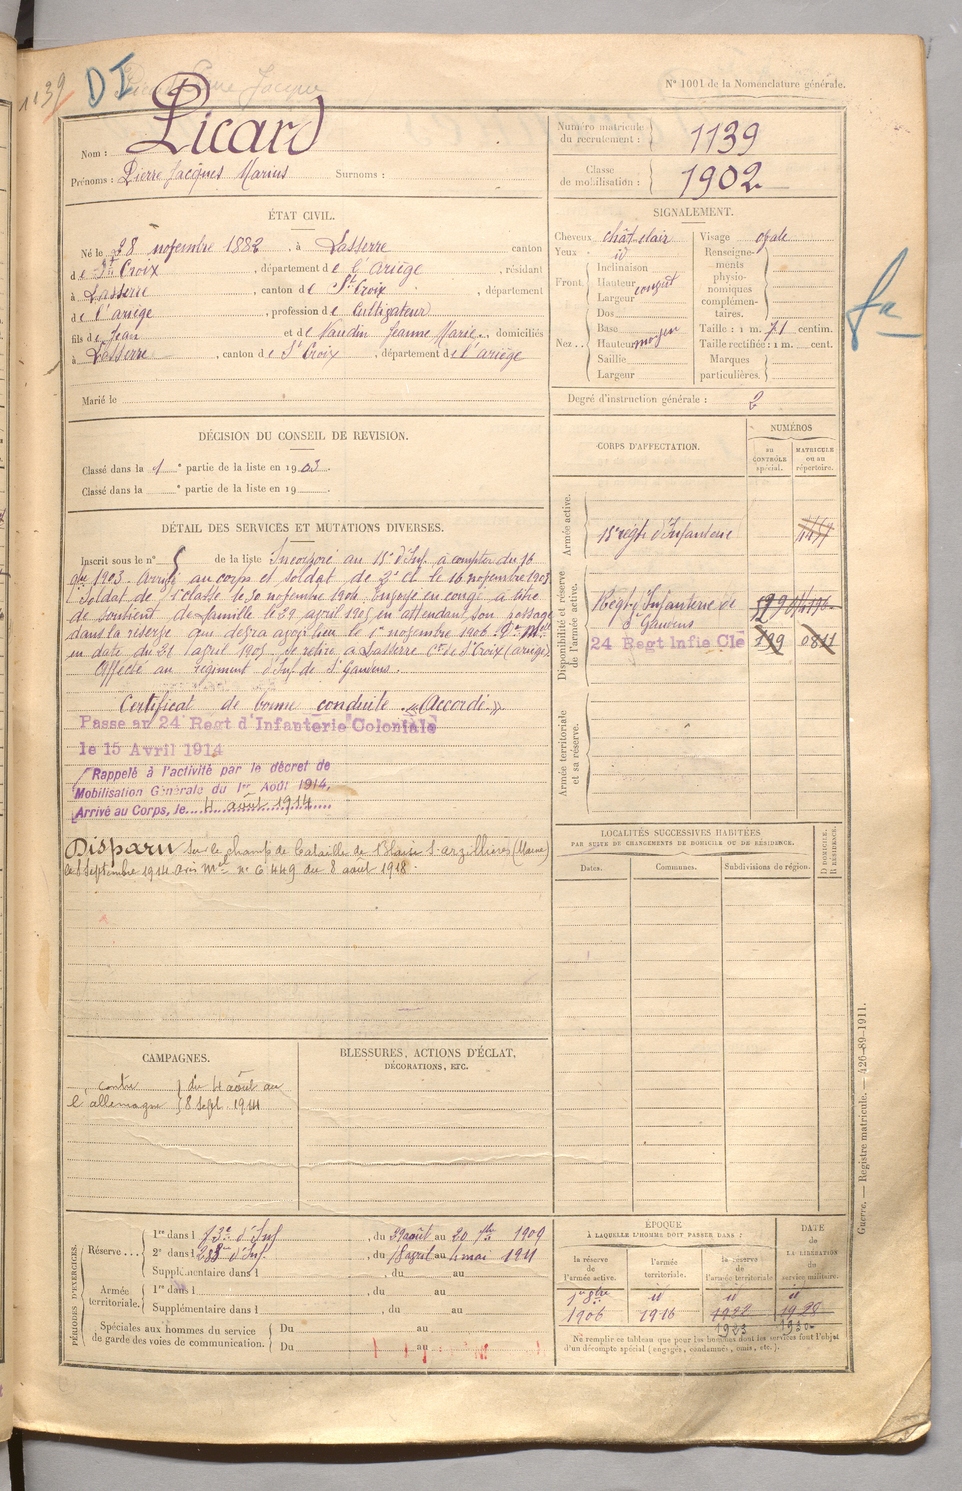 1139
DI
N° 1001 de la Nomenclature générale.
Nom : Picard
Prénoms : Pierre Jacques Marius Surnoms :
Numéro matricule du recrutement : 1139
Classe de mobilisation : 1902
ÉTAT CIVIL.
Né le 28 novembre 1882, à Lasserre canton
de Ste Croix, département de l'ariège, résidant
à Lasserre, canton de Ste Croix, département
de l'ariège, profession de Cultivateur
fils de Jean et de Naudin Jeanne Marie, domiciliés
à Lasserre, canton de Ste Croix, département de l'ariège
Marié le
SIGNALEMENT.
Cheveux chât clair
Yeux id
Front. Inclinaison
Hauteur
Largeur
Nez Dos
Base
Hauteur moyen
Saillie
Largeur
Visage ovale
Renseignements physionomiques complémentaires.
Taille : 1 m. 71 centim.
Taille rectifiée : 1 m. cent.
Marques particulières.
Degré d'instruction générale : 2
DÉCISION DU CONSEIL DE REVISION.
Classé dans la 1 e partie de la liste en 1903.
Classé dans la e partie de la liste en 19 .
CORPS D'AFFECTATION.
NUMÉROS
au CONTRÔLE spécial.
MATRICULE ou au répertoire.
Armée active.
15e régt d'Infanterie
Disponibilité et réserve de l'armée active.
Régt Infanterie de St Gaudens
24 Regt Infie Cle 199 0811
Armée territoriale et sa réserve.
DÉTAIL DES SERVICES ET MUTATIONS DIVERSES.
Inscrit sous le n° 5 de la liste Incorporé au 15e d'Inf. à compter du 16
9bre 1903. Arrivé au corps et soldat de 2e cl. le 16 novembre 1903.
Soldat de 1e classe le 10 novembre 1904. Envoyé en congé à titre
de soutient de famille le 29 avril 1905 en attendant son passage
dans la réserve que devra avoir lieu le 1er novembre 1906
en date du 21 avril 1905 Se retire à Lasserre Con de Ste Croix (ariège)
Affecté au régiment d'Inf de St Gaudens.
Certificat de bonne conduite « Accordé »
Passe au 24 Regt d'Infanterie Coloniale
le 15 Avril 1914
Rappelé à l'activité par le décret de
Mobilisation Générale du 1er Août 1914.
Arrivé au Corps, le 4 août 1914
Disparu sur le champ de bataille de Blaise S-arzillières (Marne)
le 8 Septembre 1914 avis Mel n° C 449 du 8 août 1918.
LOCALITÉS SUCCESSIVES HABITÉES
PAR SUITE DE CHANGEMENTS DE DOMICILE OU DE RÉSIDENCE.
Dates. Communes. Subdivisions de région. D. DOMICILE. R. RÉSIDENCE.
CAMPAGNES.
contre l'allemagne } du 4 août au
8 sept. 1914
BLESSURES, ACTIONS D'ÉCLAT,
DÉCORATIONS, ETC.
PÉRIODES D'EXERCICES.
Réserve . . . 1re dans l , du 29 août au 20 7bre 1909
2e dans l , du 18 avril au 4 mai 1911
Supplémentaire dans l , du au
Armée territoriale. 1re dans l , du au
Supplémentaire dans l , du au
Spéciales aux hommes du service
de garde des voies de communication. Du au
Du au
ÉPOQUE
À LAQUELLE L'HOMME DOIT PASSER DANS :
la réserve de l'armée active.
l'armée territoriale.
la réserve de l'armée territoriale
DATE DE LA LIBÉRATION du service militaire.
1er 9bre id id id
1906 1916 1922 1929
1923
Ne remplir ce tableau que pour les hommes dont les services font l'objet
d'un décompte spécial (engagés, condamnés, omis, etc.).
Guerre. — Registre matricule. — 426-89-1911.